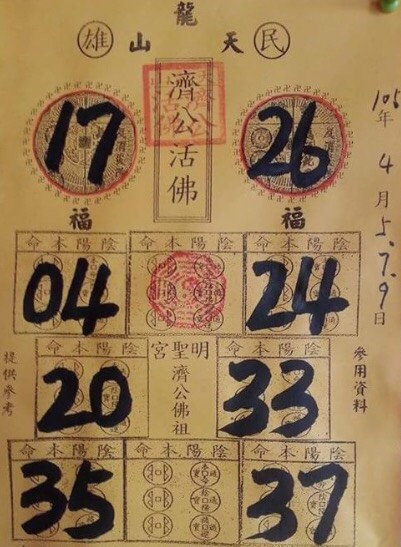 龍
雄 山 天 民
濟公活佛
17 26
105年4月5.7.9日
福 福
命本陽陰 命本陽陰
04 24
命本陽陰 明聖宮 命本陽陰
濟公佛祖
20 33
提供參考
參用資料
命本陽陰 命本陽陰
35 37